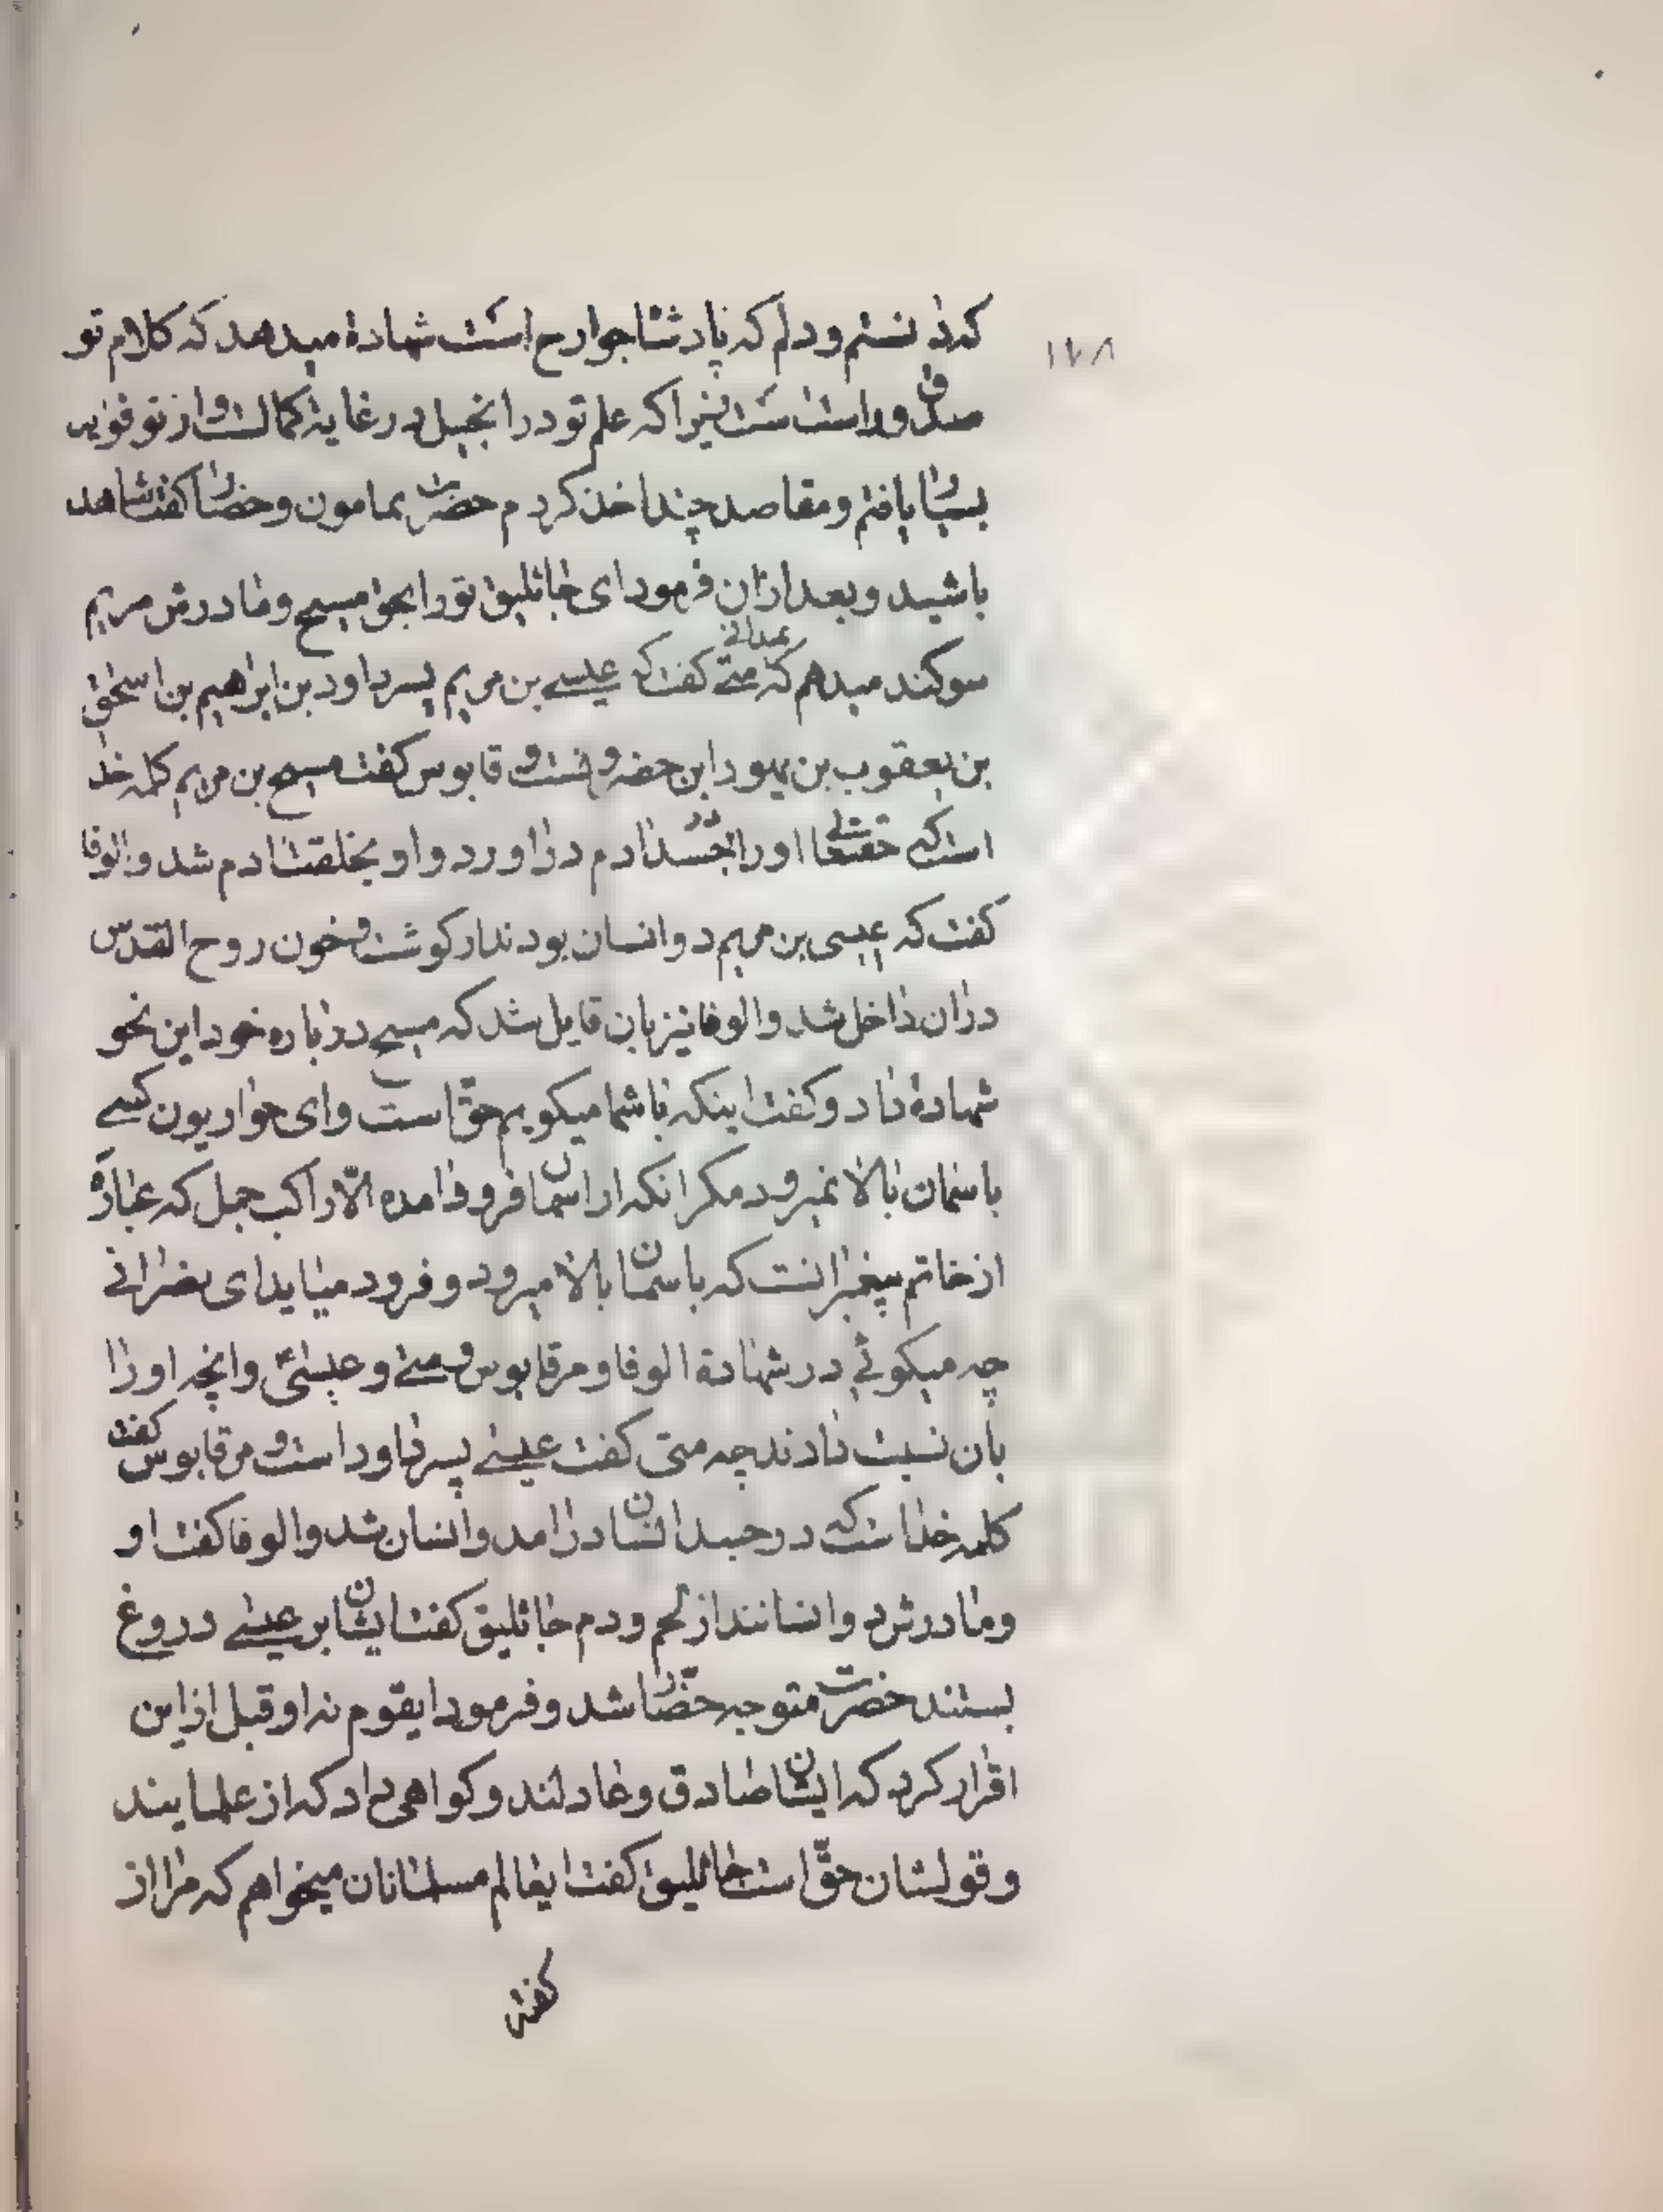 ۱۷۸
که دانستم و دلم که پادشاه جوارح است شهادة میدهد که کلام تو
صدق و راست ست زیرا که علم تو در انجیل در غایة کمالست و از تو فواید
بسیار یافتم و مقاصد چند اخذ کردم حضرت بمامون و حضار کفت شاهد
باشید و بعد ازان فرمود ای جاثلیق تو را بحق مسیح و مادرش مریم
سوکند میدهم که متی کفت که عیسی بن مریم پسر داود بن ابراهیم بن اسحق
بن یعقوب بن یهود ابن حضرون است و مرقابوس کفت مسیح بن مریم کلمه خدا
است که حقتعالی او را در جسد ادم دراورد و او بخلقت ادم شد و الوفا
کفت که عیسی بن مریم دو انسان بودند از کوشت و خون روح القدس
دران داخل شد و الوفا نیز بان قایل شد که مسیح در باره خود این نحو
شهادة داد و کفت اینکه باشما میکویم حق است و ای حواریون کسی
باسمان بالا نمیرود مکر انکه از اسمان فرود امده الا راکب جمل که عبارة
از خاتم پیغمبرانست که باسمان بالا میرود و فرود میاید ای نصرانی
چه میکوئی در شهادة الوفا و مرقابوس و متی و عیسی و انچه او را
بان نسبت دادند چه متی کفت عیسی پسر داود است و مرقابوس کفت
کلمه خداست که در جسد انسان درامد و انسان شد و الوفا کفت او
و مادرش دو انسانند از لحم و دم جاثلیق کفت ایشان بر عیسی دروغ
بستند حضرت متوجه حضار شد و فرمود ایقوم نه او قبل از این
اقرار کرد که ایشان صادق و عادلند و کواهی داد که از علمایند
و قولشان حق است جاثلیق کفت ایعالم مسلمانان میخواهم که مرا از
کفتن